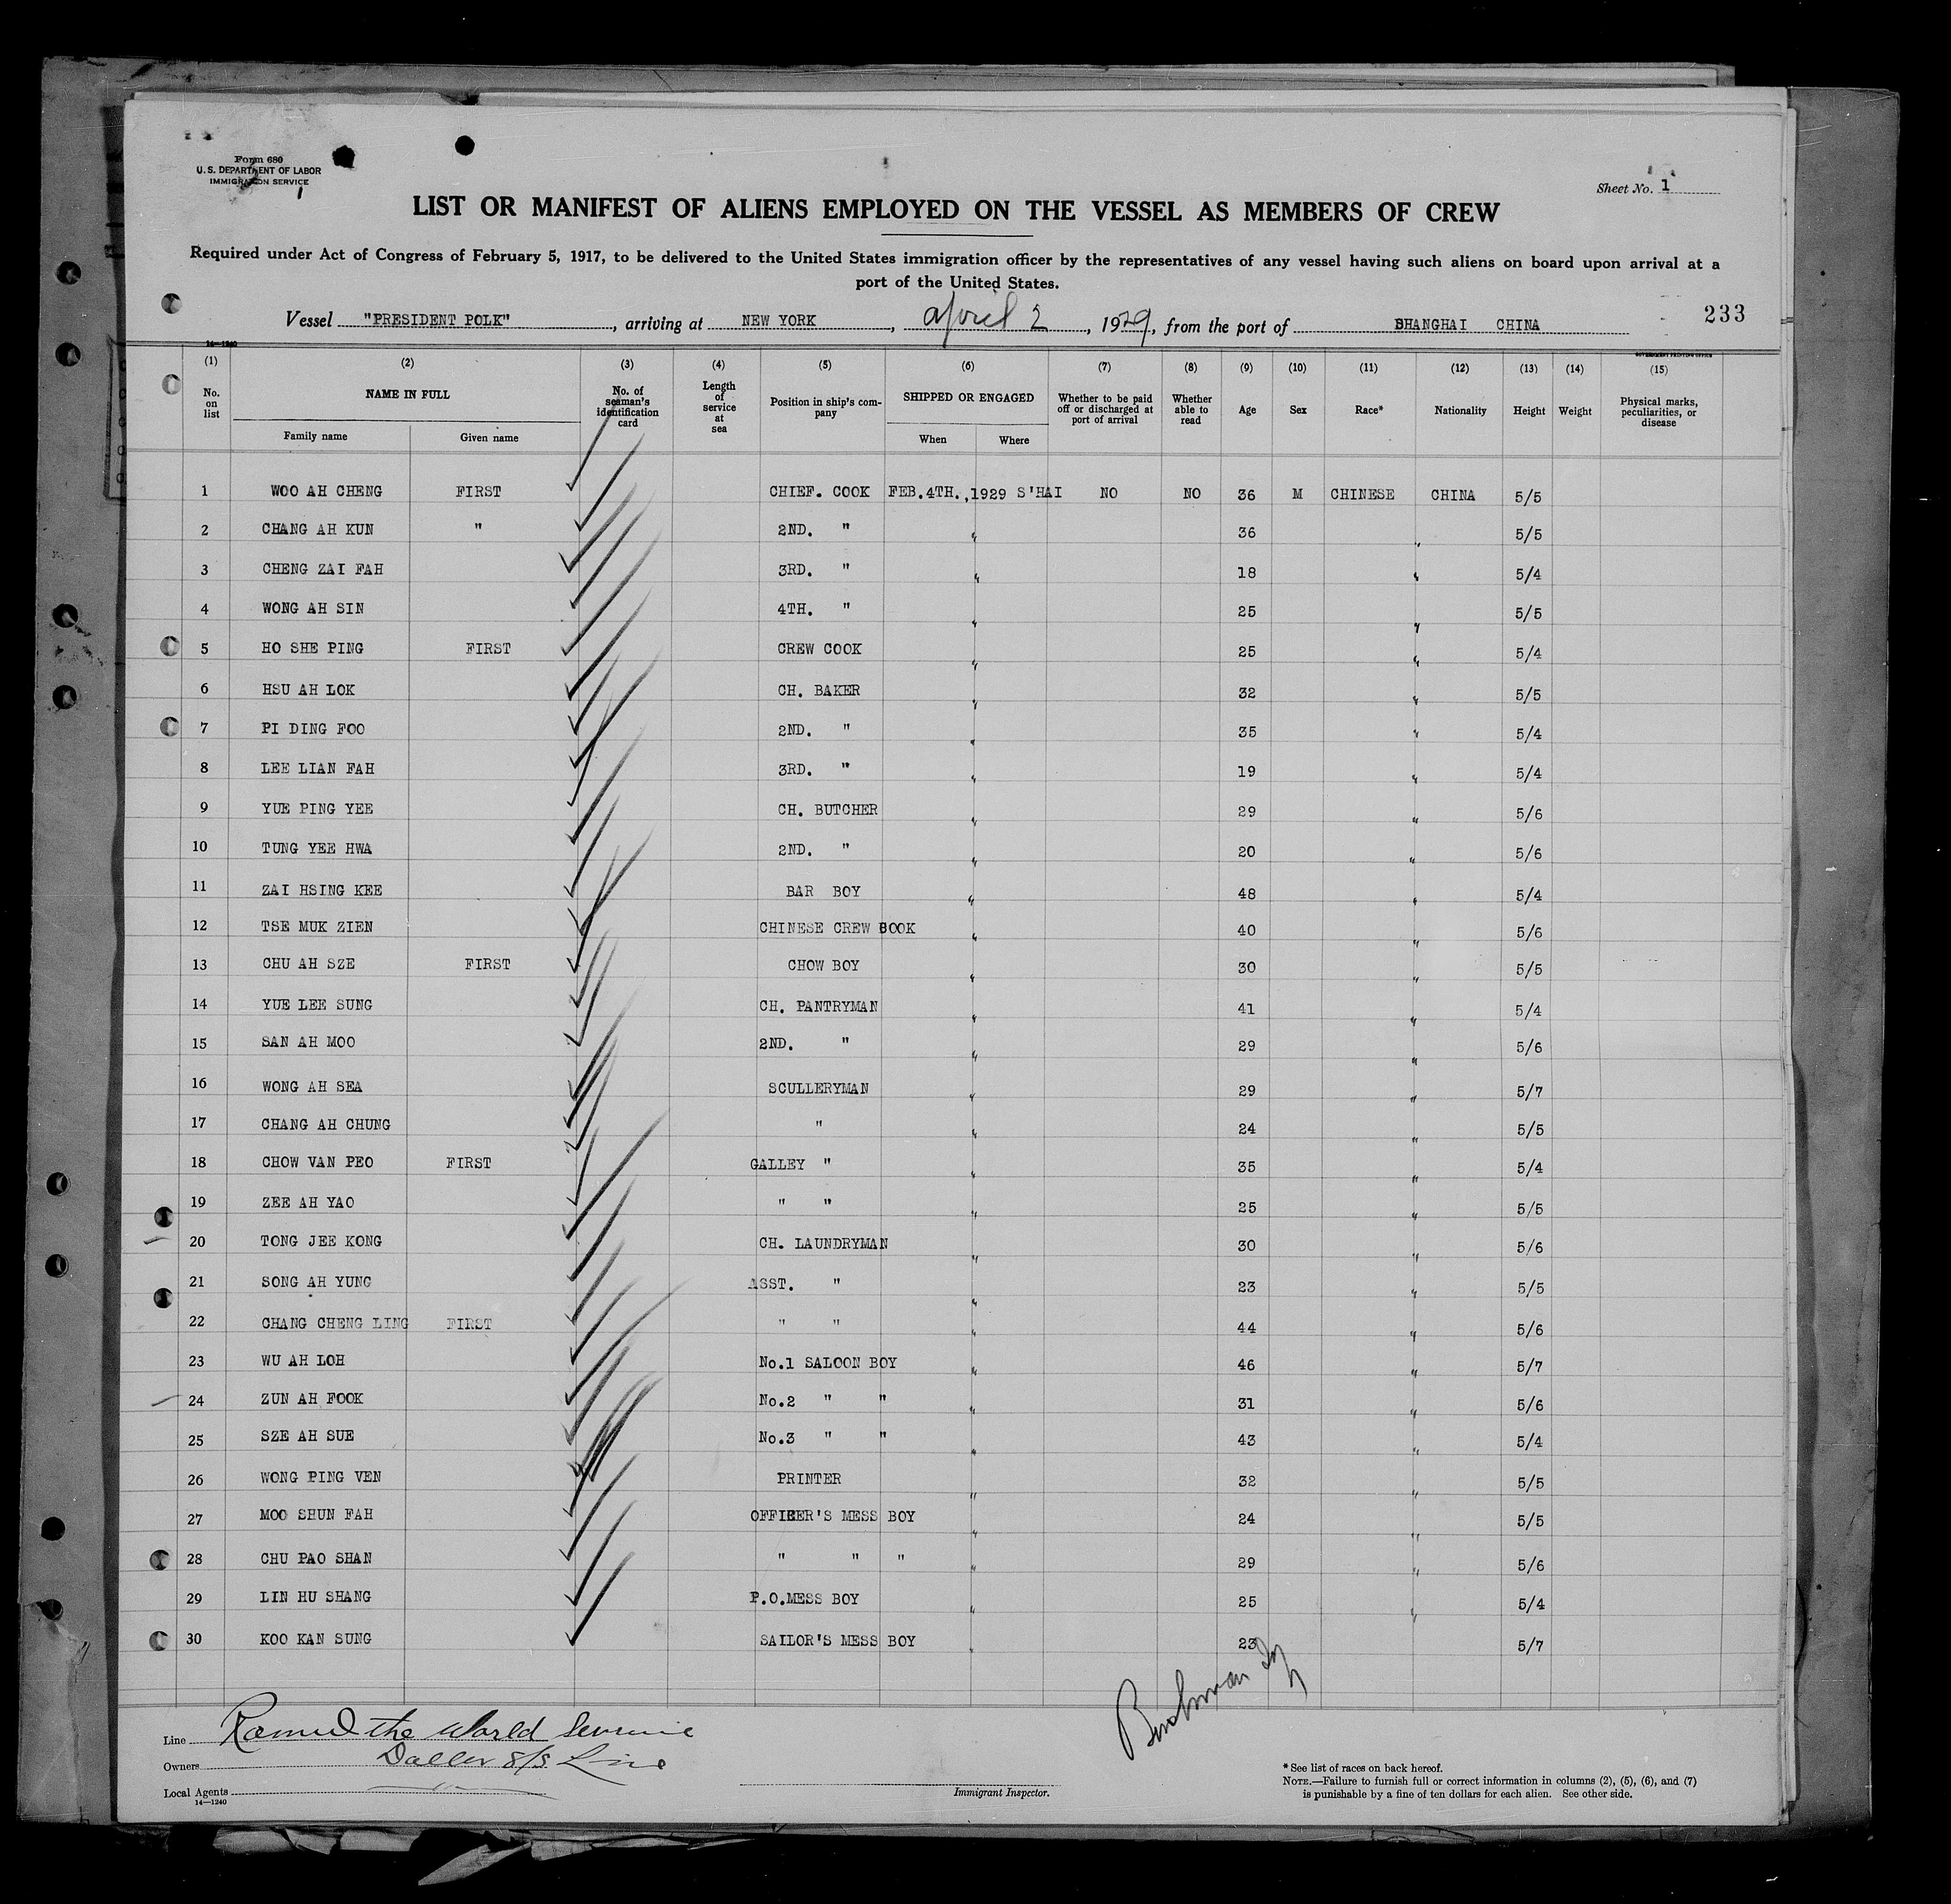 Form 680
U. S. DEPARTMENT OF LABOR
IMMIGRATION SERVICE
Sheet No. 1
LIST OR MANIFEST OF ALIENS EMPLOYED ON THE VESSEL AS MEMBERS OF CREW
Required under Act of Congress of February 5, 1917, to be delivered to the United States immigration officer by the representatives of any vessel having such aliens on board upon arrival at a
port of the United States.
233
Vessel "PRESIDENT POLK", arriving at NEW YORK, April 2, 1929, from the port of SHANGHAI CHINA
14—1240 GOVERNMENT PRINTING OFFICE
(1) (2) (3) (4) (5) (6) (7) (8) (9) (10) (11) (12) (13) (14) (15)
No. on list NAME IN FULL No. of seaman's identification card Length of service at sea Position in ship's company SHIPPED OR ENGAGED Whether to be paid off or discharged at port of arrival Whether able to read Age Sex Race* Nationality Height Weight Physical marks, peculiarities, or disease
Family name Given name When Where
1 WOO AH CHENG FIRST CHIEF. COOK FEB.4TH.,1929 S'HAI NO NO 36 M CHINESE CHINA 5/5
2 CHANG AH KUN " 2ND. " " 36 " 5/5
3 CHENG ZAI FAH 3RD. " " 18 " 5/4
4 WONG AH SIN 4TH. " " 25 " 5/5
5 HO SHE PING FIRST CREW COOK " 25 " 5/4
6 HSU AH LOK CH. BAKER " 32 " 5/5
7 PI DING FOO 2ND. " " 35 " 5/4
8 LEE LIAN FAH 3RD. " " 19 " 5/4
9 YUE PING YEE CH. BUTCHER " 29 " 5/6
10 TUNG YEE HWA 2ND. " " 20 " 5/6
11 ZAI HSING KEE BAR BOY " 48 " 5/4
12 TSE MUK ZIEN CHINESE CREW COOK " 40 " 5/6
13 CHU AH SZE FIRST CHOW BOY " 30 " 5/5
14 YUE LEE SUNG CH. PANTRYMAN " 41 " 5/4
15 SAN AH MOO 2ND. " " 29 " 5/6
16 WONG AH SEA SCULLERYMAN " 29 " 5/7
17 CHANG AH CHUNG " " 24 " 5/5
18 CHOW VAN PEO FIRST GALLEY " " 35 " 5/4
19 ZEE AH YAO " " " 25 " 5/5
20 TONG JEE KONG CH. LAUNDRYMAN " 30 " 5/6
21 SONG AH YUNG ASST. " " 23 " 5/5
22 CHANG CHENG LING FIRST " " " 44 " 5/6
23 WU AH LOH No.1 SALOON BOY " 46 " 5/7
24 ZUN AH FOOK No.2 " " " 31 " 5/6
25 SZE AH SUE No.3 " " " 43 " 5/4
26 WONG PING VEN PRINTER " 32 " 5/5
27 MOO SHUN FAH OFFICER'S MESS BOY " 24 " 5/5
28 CHU PAO SHAN " " " " 29 " 5/6
29 LIN HU SHANG P.O.MESS BOY " 25 " 5/4
30 KOO KAN SUNG SAILOR'S MESS BOY " 23 5/7
Line Round the World Service
Owners Dollar S/S Line
Local Agents "
14—1240
Immigrant Inspector.
*See list of races on back hereof.
NOTE.—Failure to furnish full or correct information in columns (2), (5), (6), and (7)
is punishable by a fine of ten dollars for each alien. See other side.